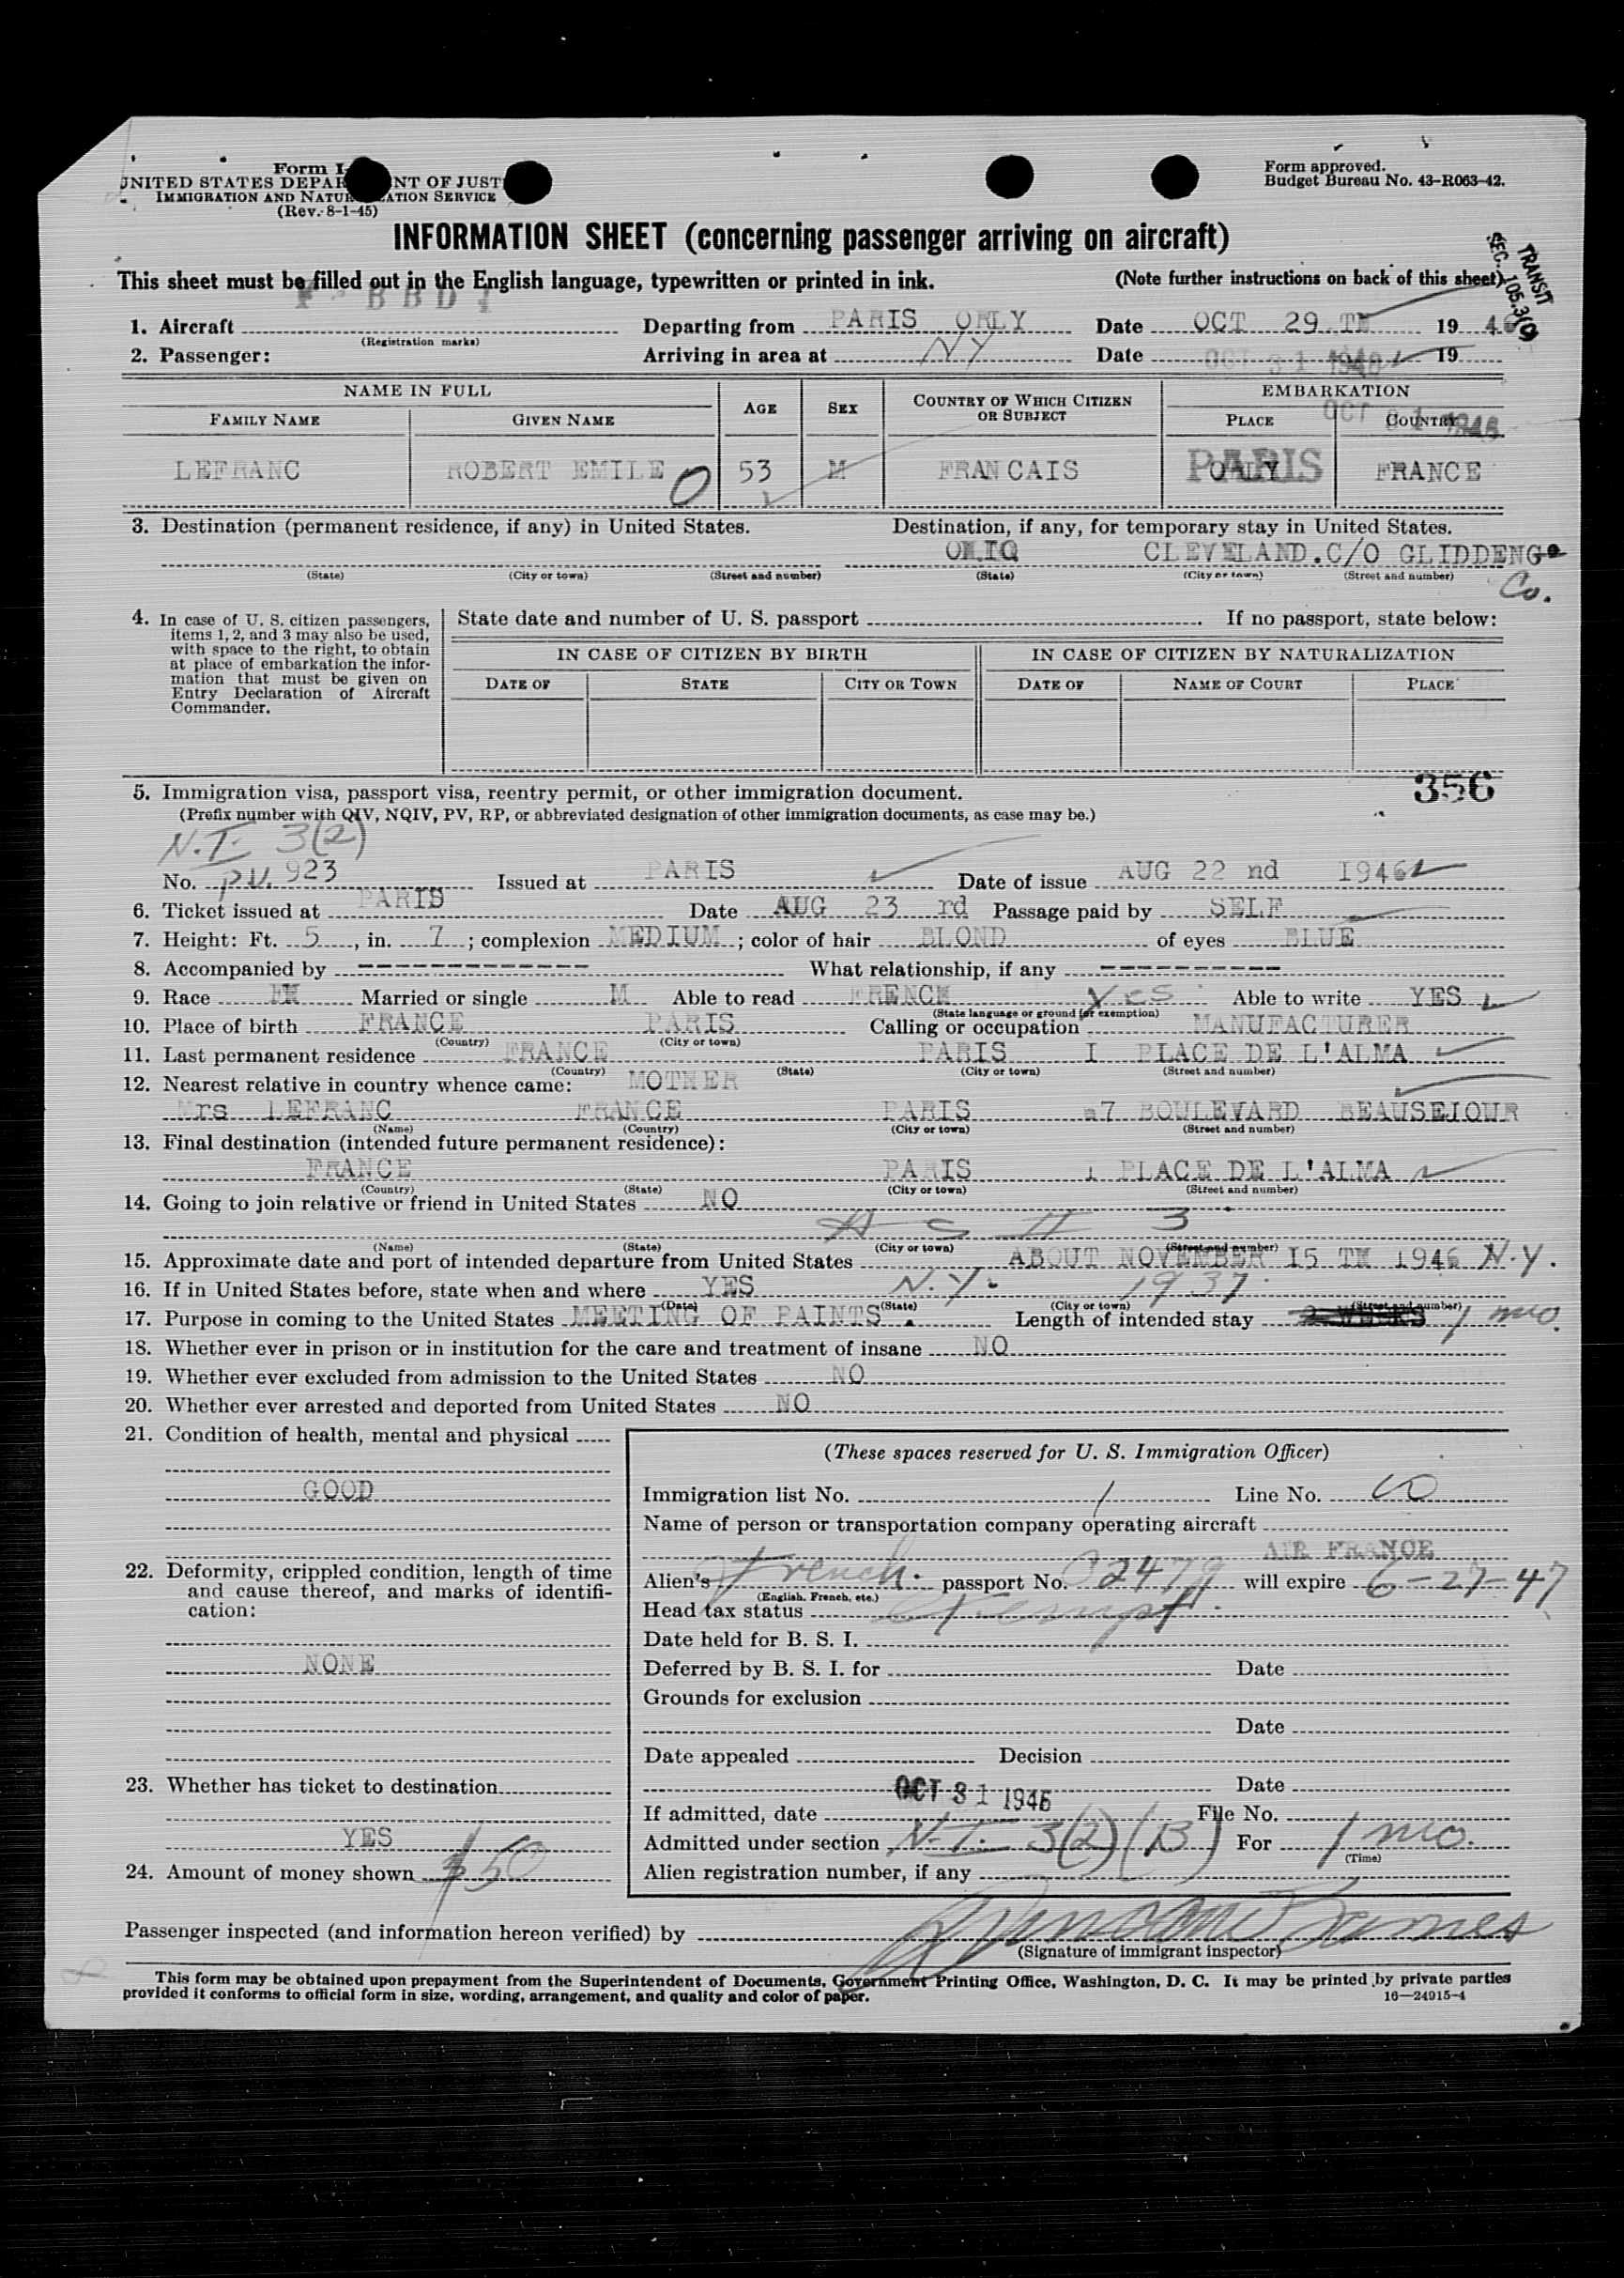 Form I-
UNITED STATES DEPAR NT OF JUST
IMMIGRATION AND NATUR ATION SERVICE
(Rev. 8-1-45)
Form approved.
Budget Bureau No. 43-R063-42.
INFORMATION SHEET (concerning passenger arriving on aircraft)
TRANSIT
This sheet must be filled out in the English language, typewritten or printed in ink. (Note further instructions on back of this sheet)
1. Aircraft Departing from PARIS ORLY Date OCT 29 TH 19 46
(Registration marks)
2. Passenger: Arriving in area at NY Date OCT 31 1946 19
NAME IN FULL AGE SEX COUNTRY OF WHICH CITIZEN OR SUBJECT EMBARKATION
FAMILY NAME GIVEN NAME PLACE COUNTRY
OCT 31 1946
LEFRANC ROBERT EMILE 53 M FRANCAIS ORLY PARIS FRANCE
3. Destination (permanent residence, if any) in United States. Destination, if any, for temporary stay in United States.
OHIO CLEVELAND.C/O GLIDDENG
(State) (City or town) (Street and number) (State) (City or town) (Street and number)
Co.
4. In case of U. S. citizen passengers, items 1, 2, and 3 may also be used, with space to the right, to obtain at place of embarkation the information that must be given on Entry Declaration of Aircraft Commander.
State date and number of U. S. passport If no passport, state below:
IN CASE OF CITIZEN BY BIRTH IN CASE OF CITIZEN BY NATURALIZATION
DATE OF STATE CITY OR TOWN DATE OF NAME OF COURT PLACE
356
5. Immigration visa, passport visa, reentry permit, or other immigration document.
(Prefix number with QIV, NQIV, PV, RP, or abbreviated designation of other immigration documents, as case may be.)
N.I. 3(2)
No. P.V. 923 Issued at PARIS Date of issue AUG 22 nd 1946
6. Ticket issued at PARIS Date AUG 23 rd Passage paid by SELF
7. Height: Ft. 5, in. 7; complexion MEDIUM; color of hair BLOND of eyes BLUE
8. Accompanied by ------------- What relationship, if any -----------
9. Race Married or single M Able to read FRENCH Yes Able to write YES
(State language or ground for exemption)
10. Place of birth FRANCE PARIS Calling or occupation MANUFACTURER
(Country) (City or town)
11. Last permanent residence FRANCE PARIS I PLACE DE L'ALMA
(Country) (State) (City or town) (Street and number)
12. Nearest relative in country whence came: MOTHER
Mrs LEFRANC FRANCE PARIS 7 BOULEVARD BEAUSEJOUR
(Name) (Country) (City or town) (Street and number)
13. Final destination (intended future permanent residence):
FRANCE PARIS I PLACE DE L'ALMA
(Country) (State) (City or town) (Street and number)
14. Going to join relative or friend in United States NO
(Name) (State) (City or town) (Street and number)
15. Approximate date and port of intended departure from United States ABOUT NOVEMBER I5 TH 1946 N.Y.
16. If in United States before, state when and where YES N.Y. 1937
(Date) (State) (City or town) (Street and number)
17. Purpose in coming to the United States MEETING OF PAINTS. Length of intended stay 1 mo.
18. Whether ever in prison or in institution for the care and treatment of insane NO
19. Whether ever excluded from admission to the United States NO
20. Whether ever arrested and deported from United States NO
21. Condition of health, mental and physical
GOOD
22. Deformity, crippled condition, length of time and cause thereof, and marks of identification:
NONE
23. Whether has ticket to destination
YES
24. Amount of money shown $50
(These spaces reserved for U. S. Immigration Officer)
Immigration list No. 1 Line No.
Name of person or transportation company operating aircraft
AIR FRANCE
Alien's French passport No. will expire 6-27-47
(English, French, etc.)
Head tax status exempt.
Date held for B. S. I.
Deferred by B. S. I. for Date
Grounds for exclusion
Date
Date appealed Decision
Date
If admitted, date OCT 31 1946 File No.
Admitted under section N.I. 3(2)(B) For 1 mo.
(Time)
Alien registration number, if any
Passenger inspected (and information hereon verified) by
(Signature of immigrant inspector)
This form may be obtained upon prepayment from the Superintendent of Documents, Government Printing Office, Washington, D. C. It may be printed by private parties
provided it conforms to official form in size, wording, arrangement, and quality and color of paper. 16—24915-4